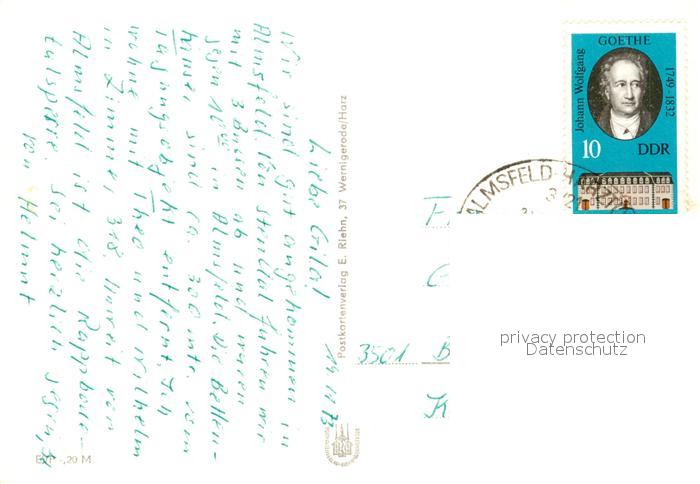 19.11.73
Liebe Gila!
Wir sind gut angekommen in
Almsfeld. Von Stendal fuhren wir
mit 3 Bussen ab und waren
gegen 10 in Almsfeld. Die Betten-
häuser sind ca. 300 mtr. vom
entfernt. Ich
wohne mit Theo und Wilhelm
in Zimmer 318. Unweit von
Almsfeld ist die Rappbode-
talsperre. Sei herzlich gegrüßt
von Helmut
EVP -,20 M
Postkartenverlag E. Riehn, 37 Wernigerode/Harz
GOETHE
Johann Wolfgang
1749-1832
10 DDR
ALMSFELD-H
3501 B
K
privacy protection
Datenschutz